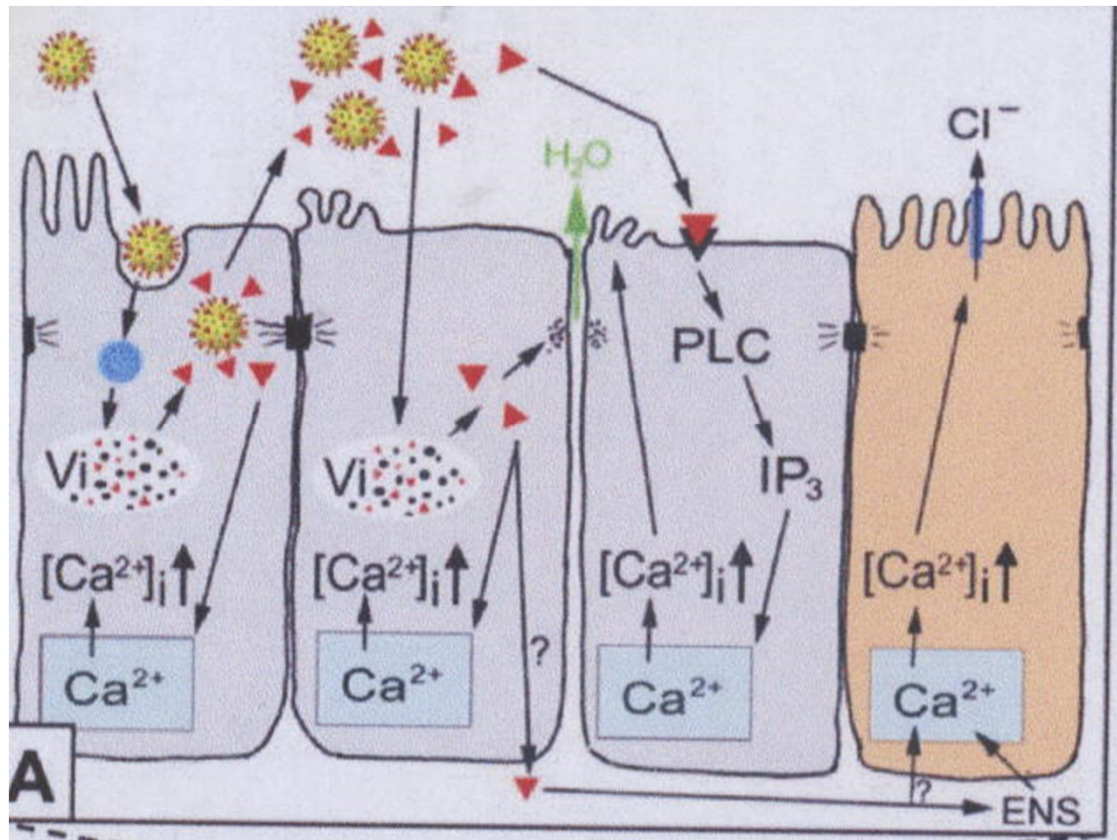 Cl⁻
H₂O
PLC
IP₃
Vi
Vi
[Ca²⁺]i
[Ca²⁺]i
[Ca²⁺]i
[Ca²⁺]i
?
Ca²⁺
Ca²⁺
Ca²⁺
Ca²⁺
A
?
ENS